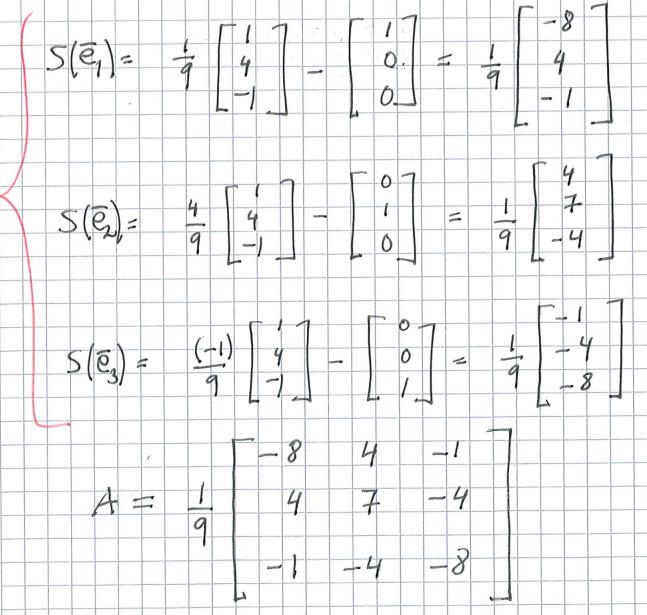 S(ē₁) = 1/9 [1 4 -1] - [1 0. 0] = 1/9 [-8 4 -1]
S(ē₂) = 4/9 [1 4 -1] - [0 1 0] = 1/9 [4 7 -4]
S(ē₃) = (-1)/9 [1 4 -1] - [0 0 1] = 1/9 [-1 -4 -8]
A = 1/9 [-8 4 -1
4 7 -4
-1 -4 -8]